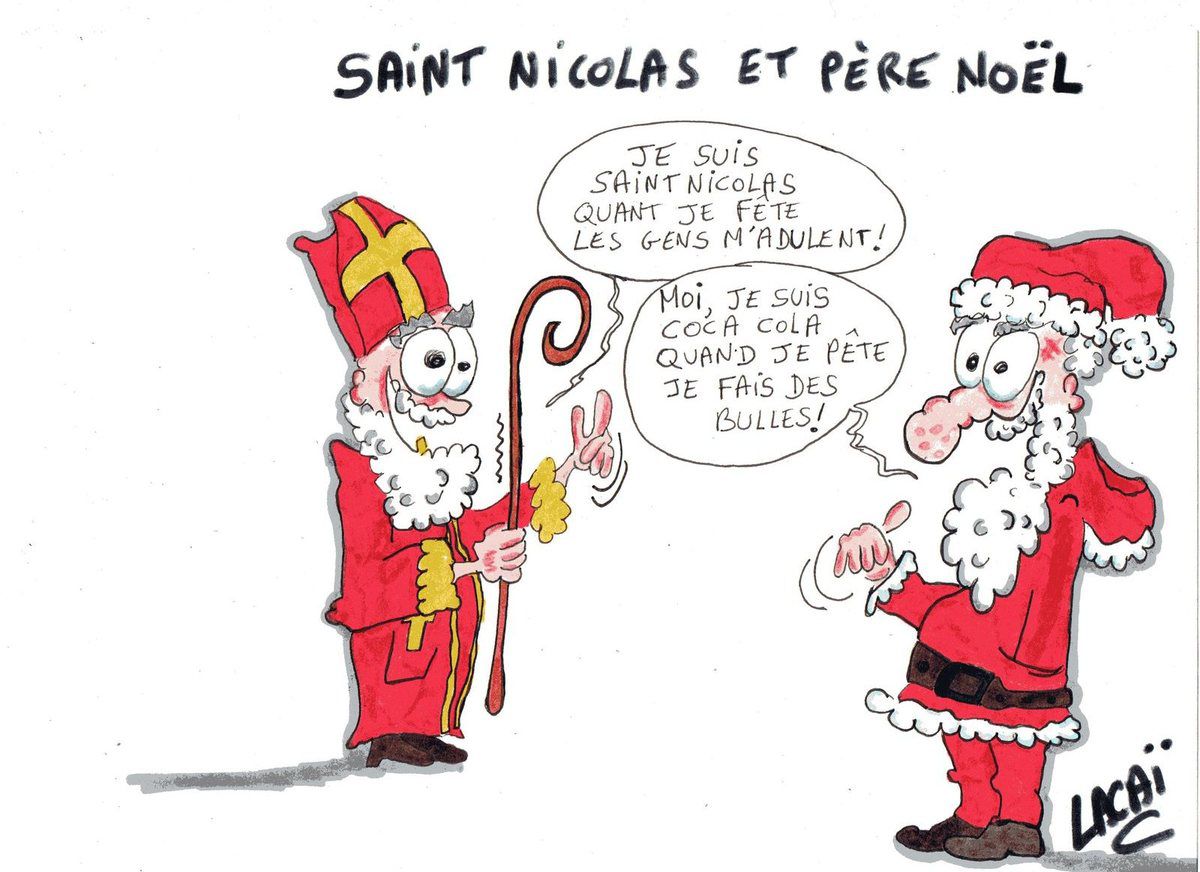 SAINT NICOLAS ET PÈRE NOËL
JE SUIS
SAINT NICOLAS
QUANT JE FÊTE
LES GENS M'ADULENT!
MOI, JE SUIS
COCA COLA
QUAND JE PÊTE
JE FAIS DES
BULLES!
LACAÏ